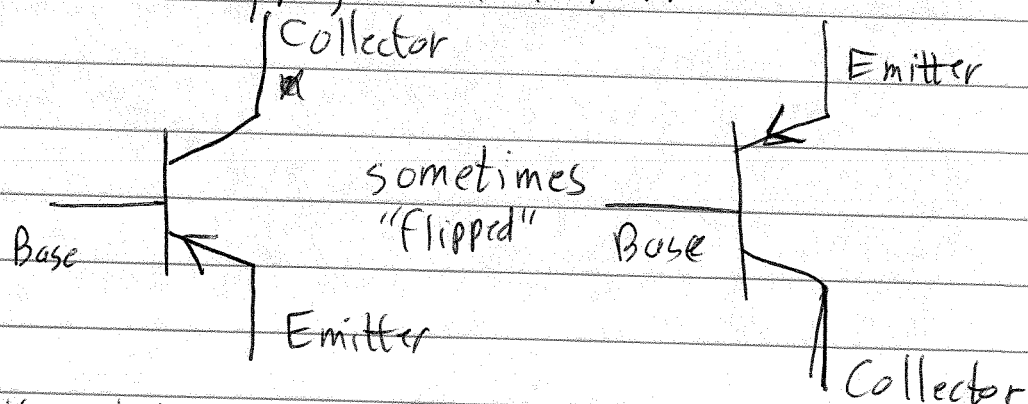 Collector
Emitter
sometimes
"flipped"
Base
Base
Emitter
Collector